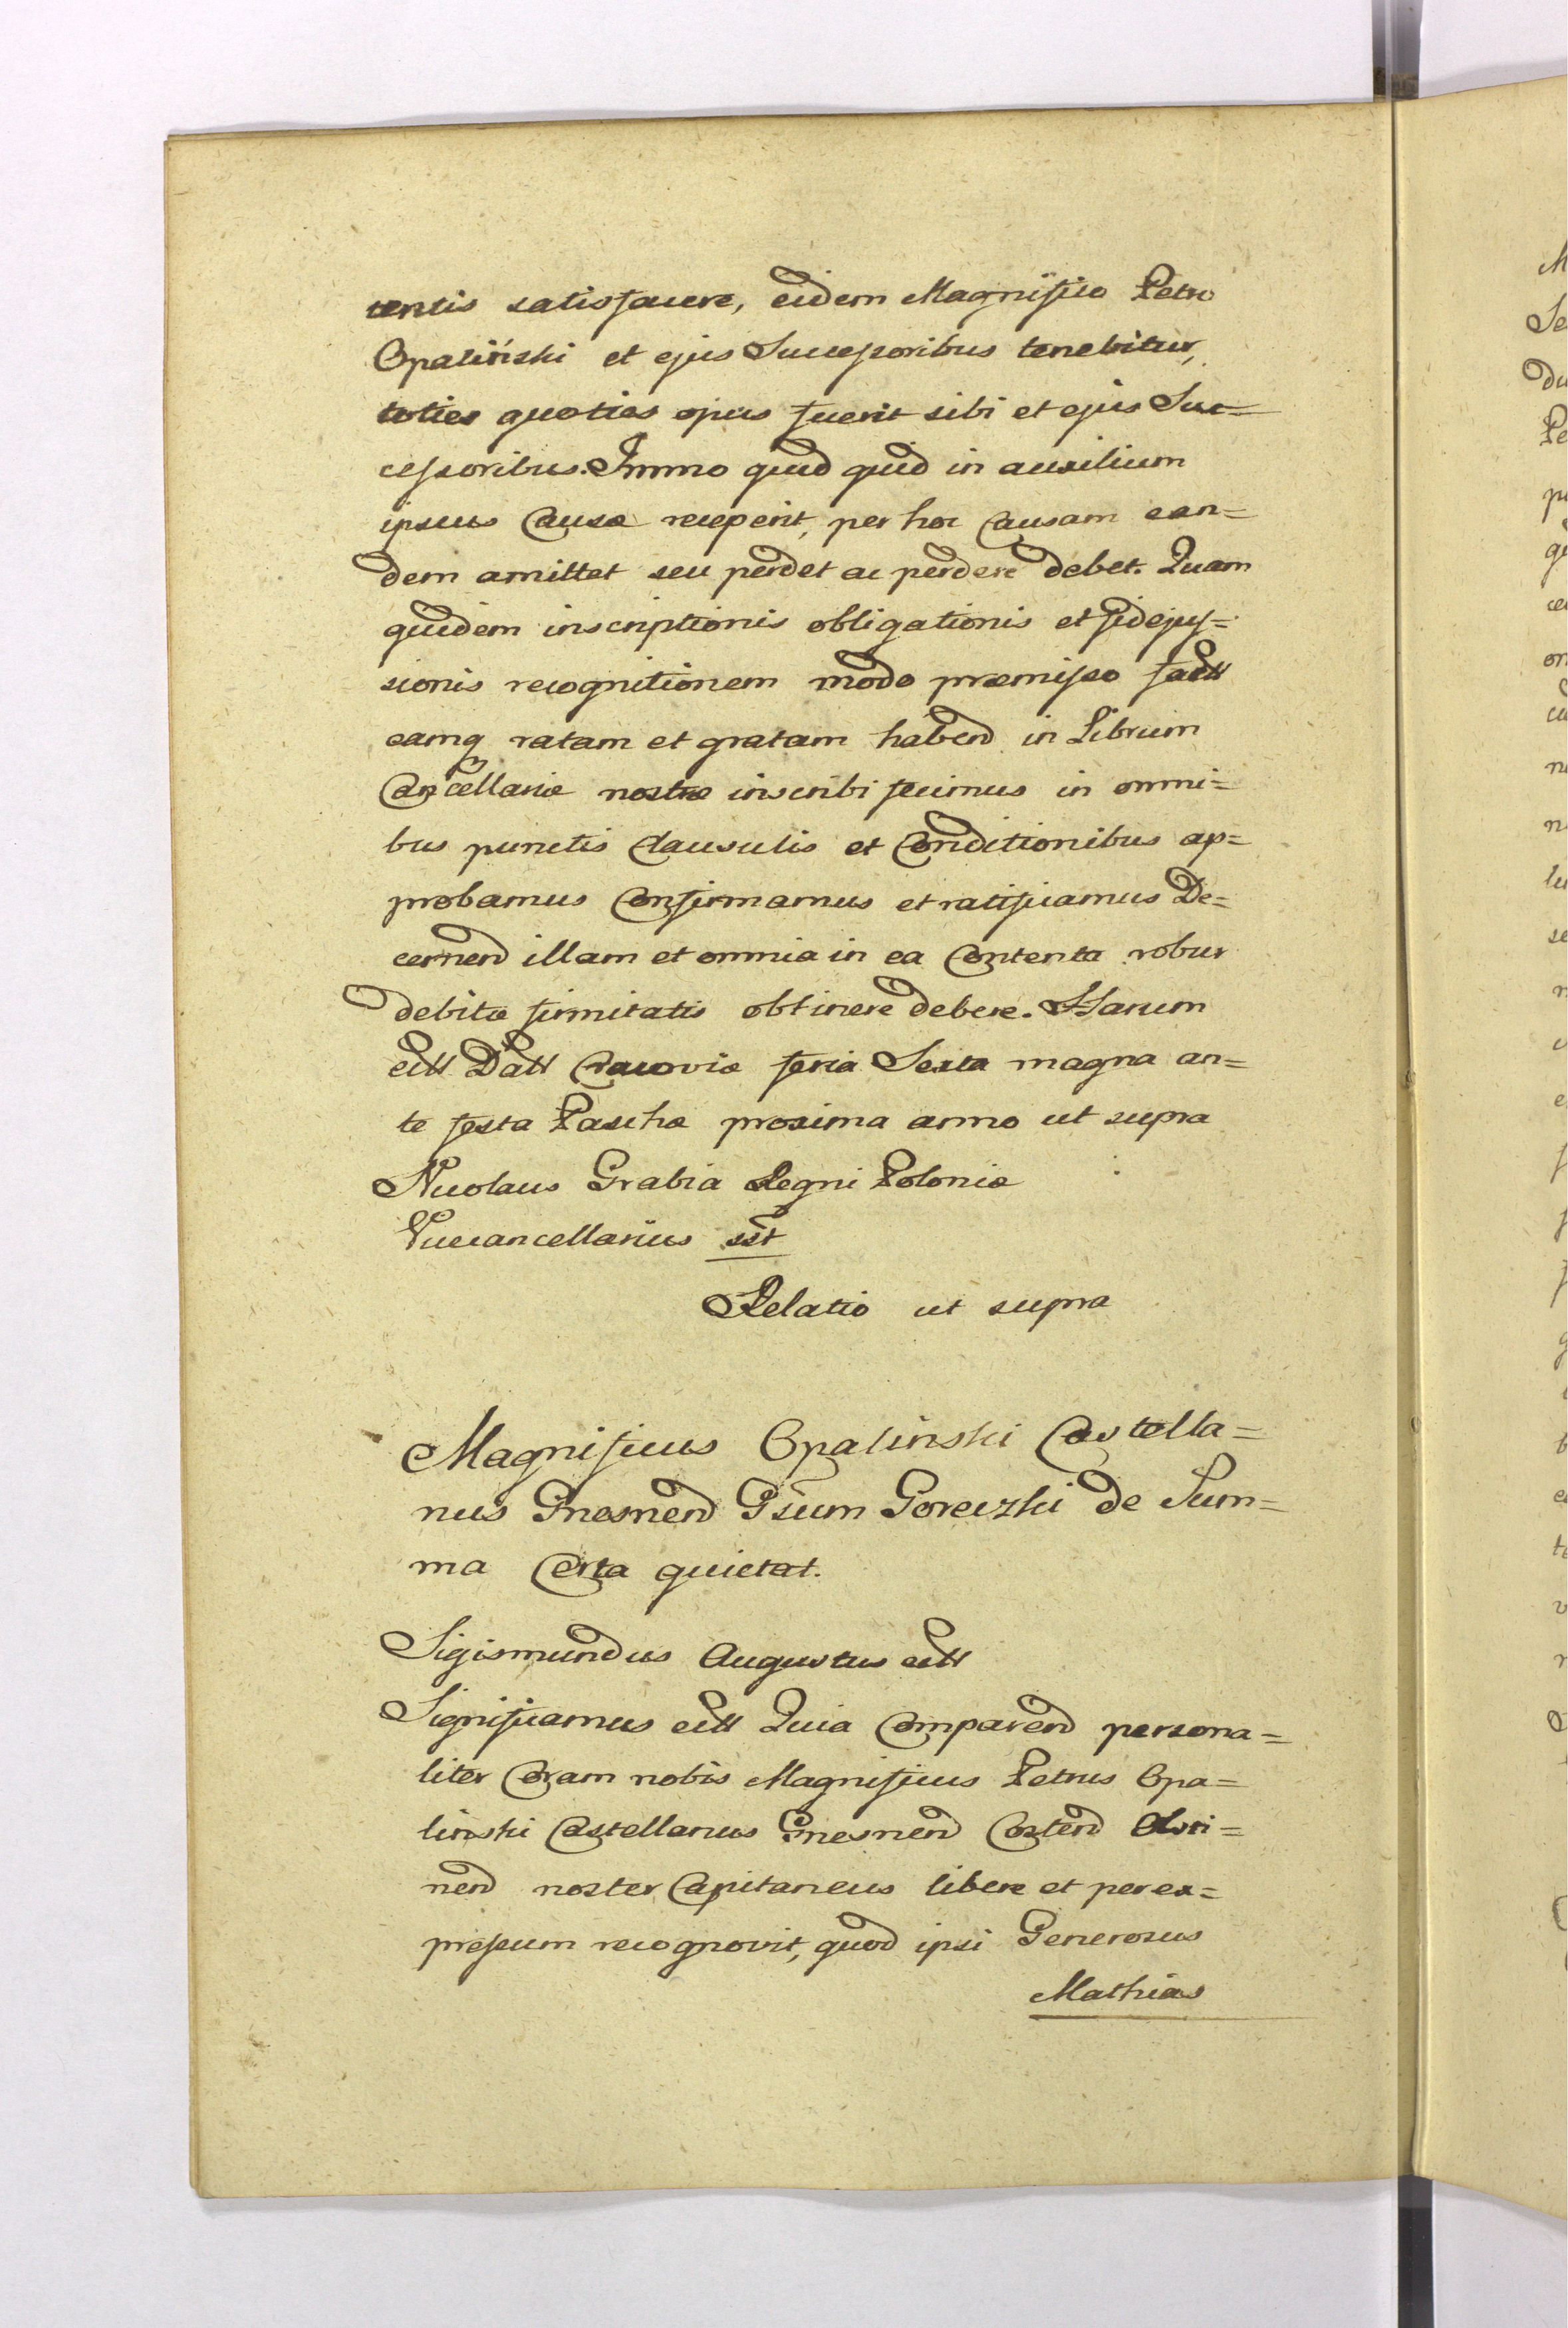 tentis satisfacere, eidem Magnifico Petro
Opaliński et ejus Successoribus tenebitur,
toties quoties opus fuerit sibi et ejus Suc=
cessoribus. Immo quid quid in auxilium
ipsius Causæ receperit, per hoc Causam ean=
dem amittet seu perdet ac perdere debet. Quam
quidem inscriptionis obligationis et fidejus=
sionis recognitionem modo præmisso factt
eamq ratam et gratam habend in Librum
Cancellariæ nostræ inscribi fecimus in omni=
bus punctis Clausulis et Conditionibus ap=
probamus Confirmamus et ratificamus De=
cernend illam et omnia in ea Contenta robur
debitæ firmitatis obtinere debere. Harum
ett Datt Cracoviæ feria Sexta magna an=
te festa Paschæ proxima anno ut supra
Nicolaus Grabia Regni Poloniæ
Vicecancellarius sst
Relatio ut supra
Magnificus Opalinski Castella=
nus Gnesnend Gsum Goreczki de Sum=
ma Certa quietat.
Sigismundus Augustus ett
Significamus ett Quia Comparend persona=
liter Coram nobis Magnificus Petrus Opa=
linski Castellanus Gnesnend Costend Olsti=
nend noster Capitaneus libere et per ex=
pressum recognovit, quod ipsi Generosus
Mathias